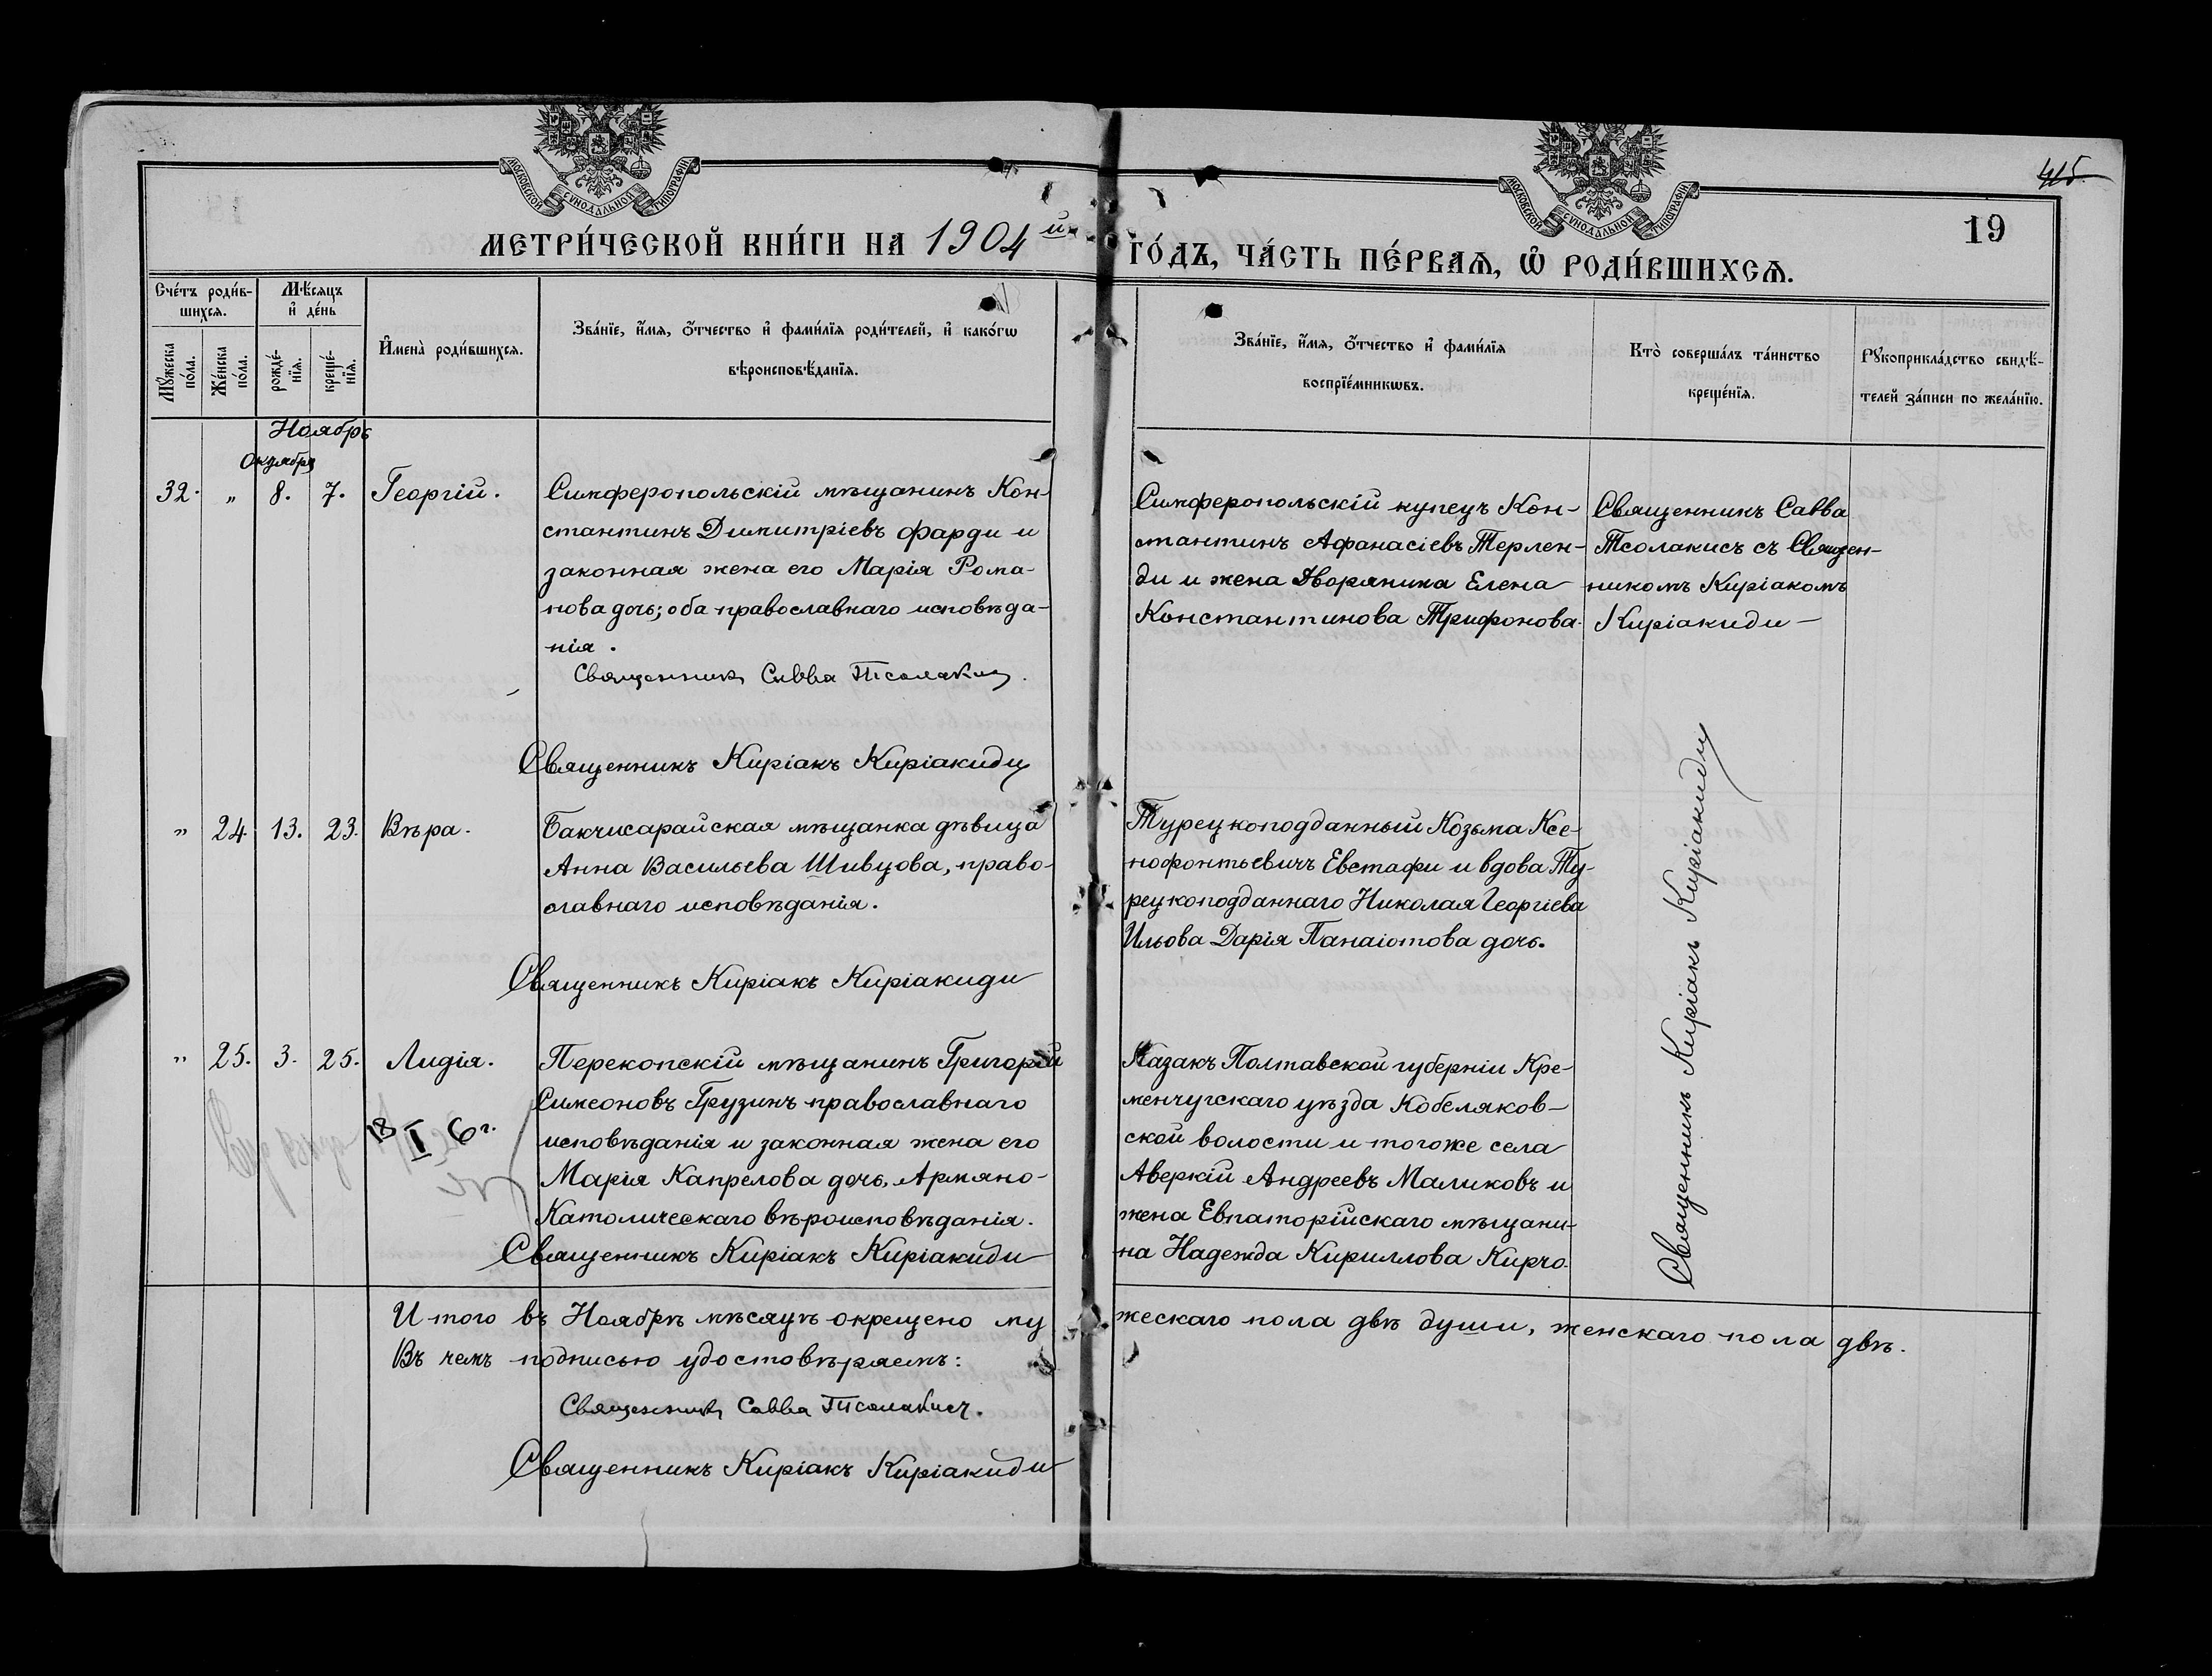 МОСКОВСКОЙ СѴНОДАЛЬНОЙ ТИПОГРАФІИ
МОСКОВСКОЙ СѴНОДАЛЬНОЙ ТИПОГРАФІИ
415.
19
МЕТРИ́ЧЕСКОЙ КНИ́ГИ НА 1904й
ГО́ДЪ, ЧА́СТЬ ПЕ́РВАѦ, Ѡ҆ РОДИ́ВШИХСѦ.
Сче́тъ роди́в-
шихсѧ.
Мꙋ́жеска
по́ла.
Же́нска
по́ла.
Мѣ́сѧцъ
и҆ де́нь
рожде́-
нїѧ.
креще́-
нїѧ.
И҆мена̀ роди́вшихсѧ.
Зва́нїе, и҆́мѧ, ѻ҆́тчество и҆ фами́лїѧ роди́телей, и҆ како́гѡ
вѣроисповѣ́данїѧ.
Зва́нїе, и҆́мѧ, ѻ҆́тчество и҆ фами́лїѧ
воспрїе́мникѡвъ.
Кто̀ соверша́лъ та́инство
креще́нїѧ.
Рꙋкоприкла́дство свидѣ́-
телей за́писи по жела́нїю.
Ноябрь
Октября
32. „ 8. 7. Георгій.
Симферопольскій мѣщанинъ Кон-
стантинъ Димитріевъ Фарди и
законная жена его Марія Рома-
нова дочь; оба православнаго исповѣда-
нія.
Священникъ Савва Тсолакисъ.
Священникъ Киріакъ Киріакиди
Симферопольскій купецъ Кон-
стантинъ Афанасіевъ Терлен-
ди и жена Дворянина Елена
Константинова Трифонова.
Священникъ Савва
Тсолакисъ съ Священ-
никомъ Киріакомъ
Киріакиди
„ 24. 13. 23. Вѣра.
Бакчисарайская мѣщанка дѣвица
Анна Васильева Шивцова, право-
славнаго исповѣданія.
Священникъ Киріакъ Киріакиди
Турецкоподданный Козьма Ксе-
нофонтьевичъ Евстафи и вдова Ту-
рецкоподданнаго Николая Георгіева
Ильова Дарія Панаіотова дочь.
Священникъ Киріакъ Киріакиди
„ 25. 3. 25. Лидія.
18 I 6 г.
Перекопскій мѣщанинъ Григорій
Симеоновъ Грузинъ православнаго
исповѣданія и законная жена его
Марія Капрелова дочь, Армяно-
Католическаго вѣроисповѣданія.
Священникъ Киріакъ Киріакиди
Казакъ Полтавской губерніи Кре-
менчугскаго уѣзда Кобеляков-
ской волости и тогоже села
Аверкій Андреевъ Маликовъ и
жена Евпаторійскаго мѣщани-
на Надежда Кириллова Кирчо.
Итого въ Ноябрѣ мѣсяцѣ окрещено му
жескаго пола двѣ души, женскаго пола двѣ.
Въ чемъ подписью удостовѣряемъ:
Священникъ Савва Тсолакисъ.
Священникъ Киріакъ Киріакиди